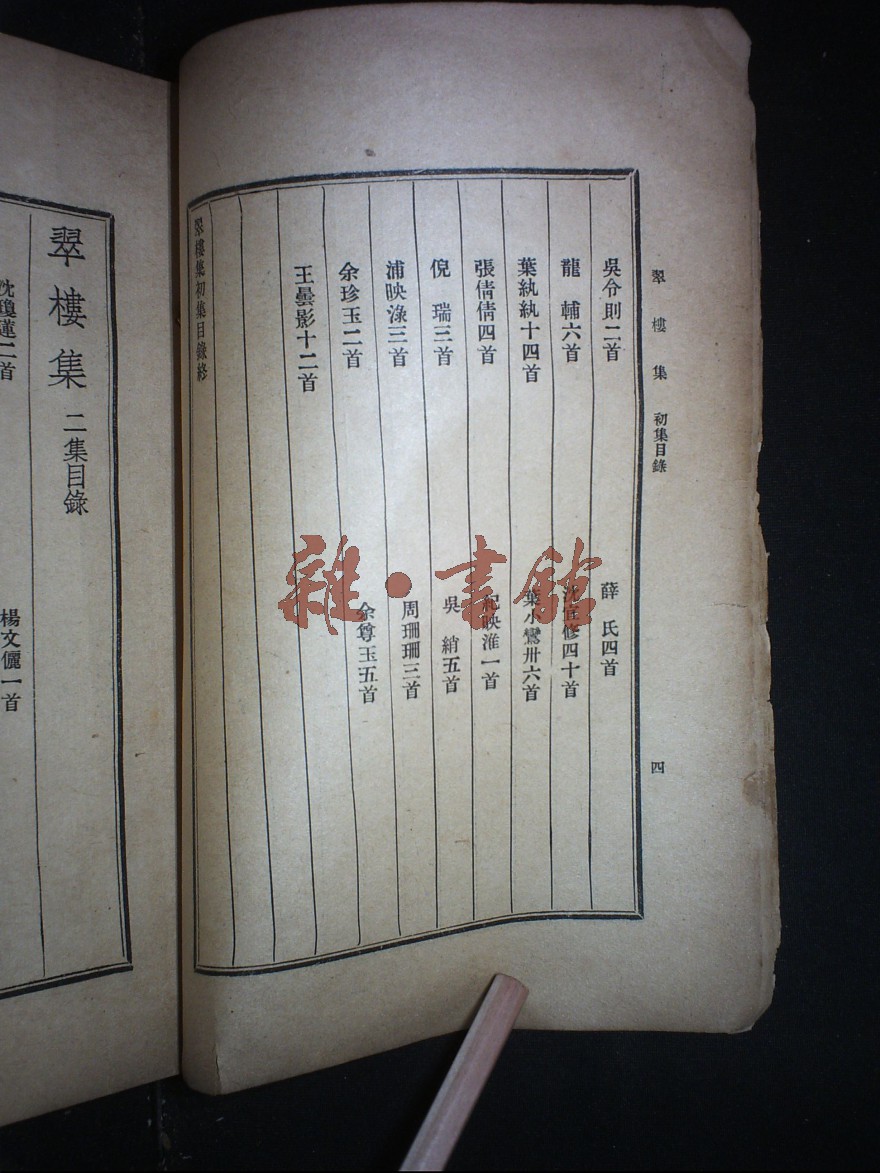 翠樓集 初集目錄 四
吳令則二首 薛氏四首
龍輔六首 沈宜修四十首
葉紈紈十四首 葉小鸞卅六首
張倩倩四首 紀映淮一首
倪瑞三首 吳綃五首
浦映淥三首 周珊珊三首
余珍玉二首 余尊玉五首
王曇影十二首
翠樓集初集目錄終
翠樓集 二集目錄
沈瓊蓮二首 楊文儷一首
雜·書館